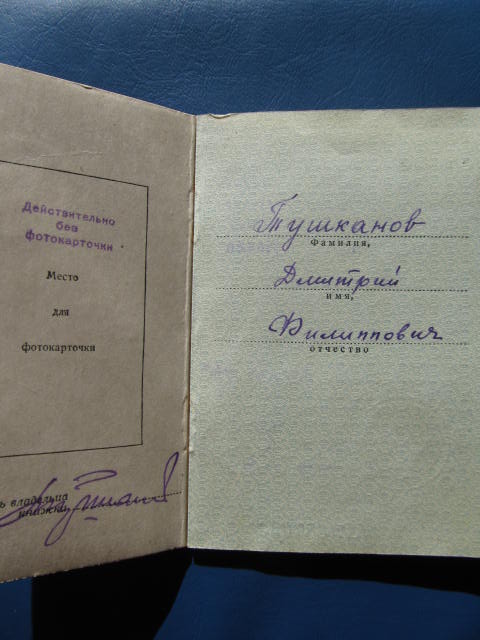 Действительно
без
фотокарточки
Место
для
фотокарточки
ь владельца
книжки
Тушканов
Фамилия,
Дмитрий
имя,
Филиппович
отчество